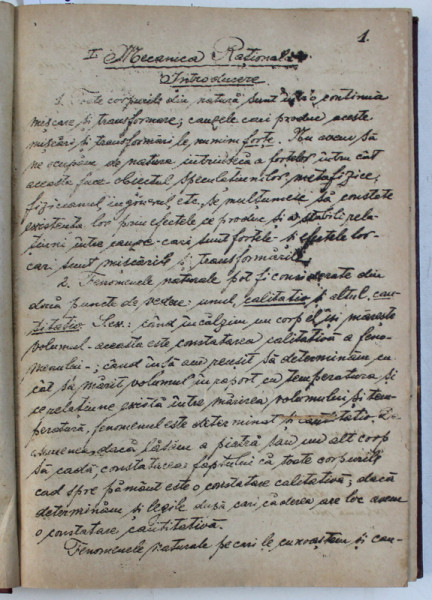 1.
I Mecanica Rațională.
Introducere
1. Toate corpurile din natură sunt într'o continuă
mișcare și transformare; cauzele cari produc aceste
mișcări și transformări le numim forțe. Nu avem să
ne ocupăm de natura intrinsecă a forțelor, întru cât
aceasta face obiectul speculațiunilor metafizice;
fizicianul în general etc. se mulțumesc să constate
existența lor prin efectele ce produc și a stabili rela-
țiuni între cauze cari sunt forțele și efectele lor
cari sunt mișcările și transformările.
2. Fenomenele naturale pot fi considerate din
două puncte de vedere: unul calitativ și altul can-
titativ. Ex: când încălzim un corp el își mărește
volumul - aceasta este constatarea calitativă a feno-
menului -; când însă am reușit să determinăm cu
cât s'a mărit volumul în raport cu temperatura și
ce relațiune există între mărirea volumului și tem-
peratură, fenomenul este determinat și cantitativ. De
asemenea, dacă lăsăm a piatră sau un alt corp
să cadă, constatarea faptului că toate corpurile
cad spre pământ este o constatare calitativă; dacă
determinăm și legile după cari căderea are loc avem
o constatare cantitativă.
Fenomenele naturale pe cari le cunoaștem și cau-